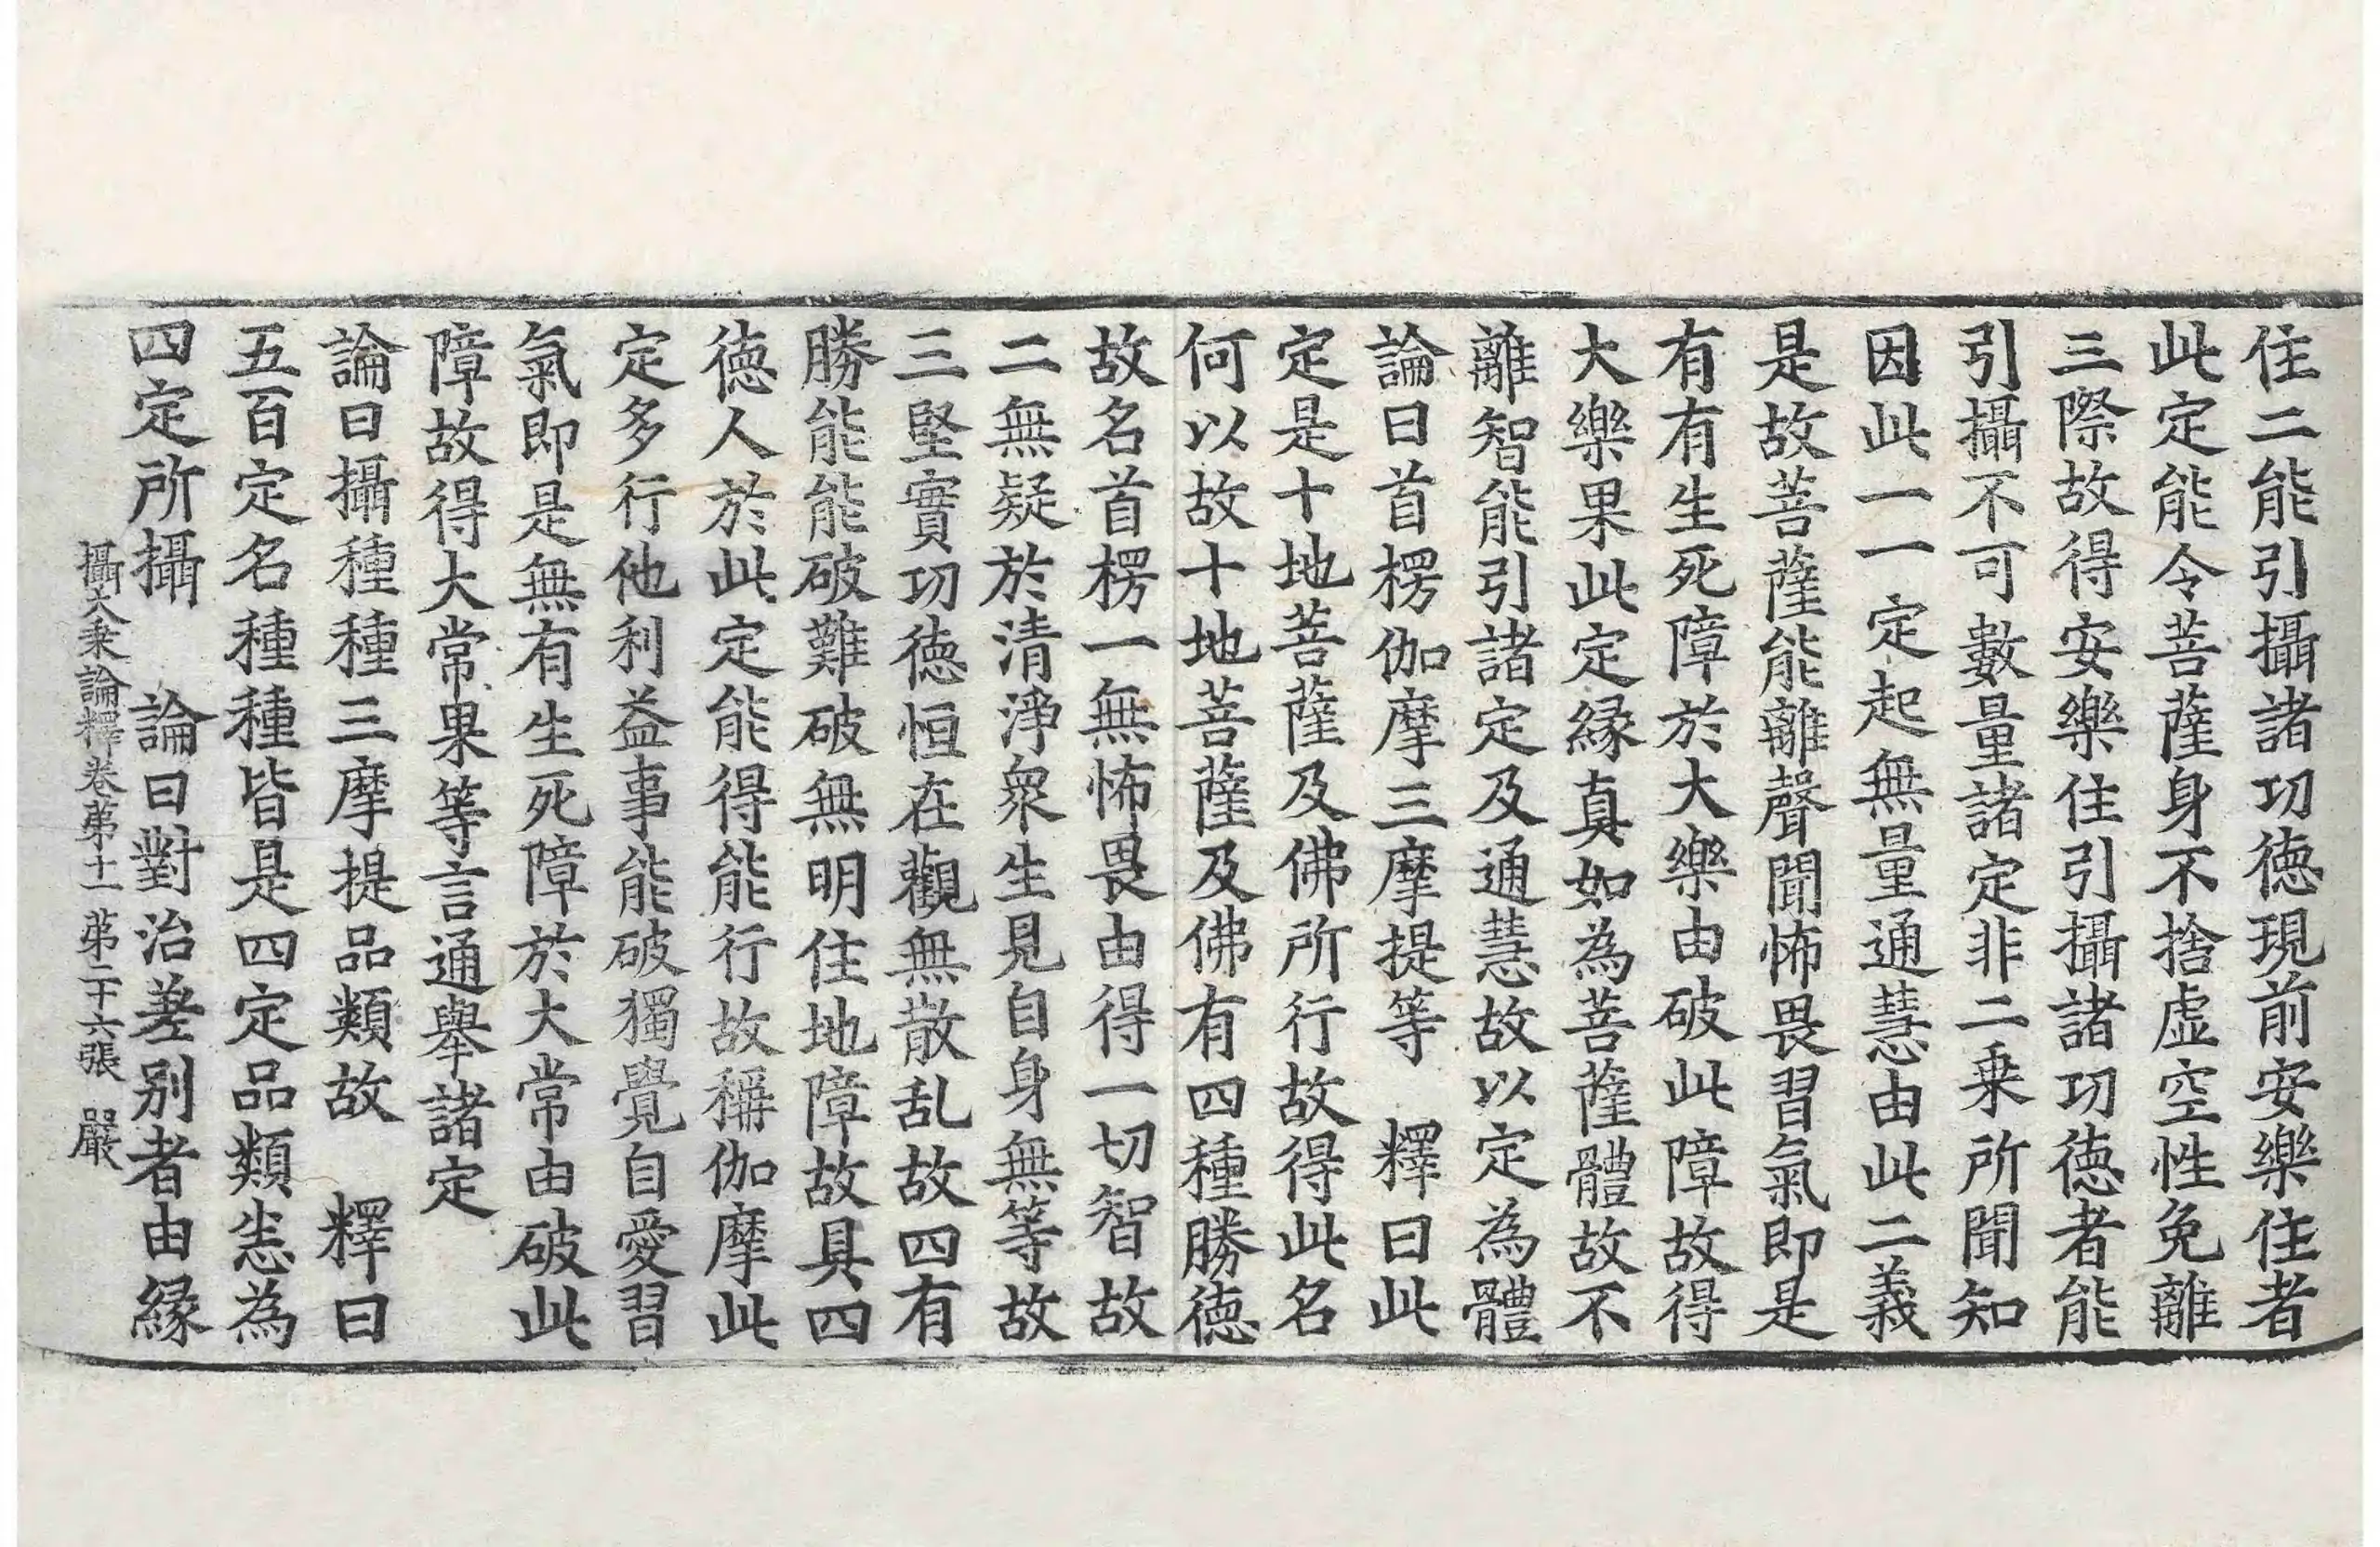 住二能引攝諸功徳現前安樂住者
此定能令菩薩身不捨虚空性免離
三際故得安樂住引攝諸功徳者能
引攝不可數量諸定非二乗所聞知
因此一一定起無量通慧由此二義
是故菩薩能離聲聞怖畏習氣即是
有有生死障於大樂由破此障故得
大樂果此定縁真如為菩薩體故不
離智能引諸定及通慧故以定為體
論曰首楞伽摩三摩提等　釋曰此
定是十地菩薩及佛所行故得此名
何以故十地菩薩及佛有四種勝徳
故名首楞一無怖畏由得一切智故
二無疑於清淨衆生見自身無等故
三堅實功徳恒在觀無散乱故四有
勝能能破難破無明住地障故具四
徳人於此定能得能行故稱伽摩此
定多行他利益事能破獨覺自愛習
氣即是無有生死障於大常由破此
障故得大常果等言通舉諸定
論曰攝種種三摩提品類故　釋曰
五百定名種種皆是四定品類恙為
四定所攝　論曰對治差別者由縁
攝大乗論釋卷苐十一　苐二十六張　嚴